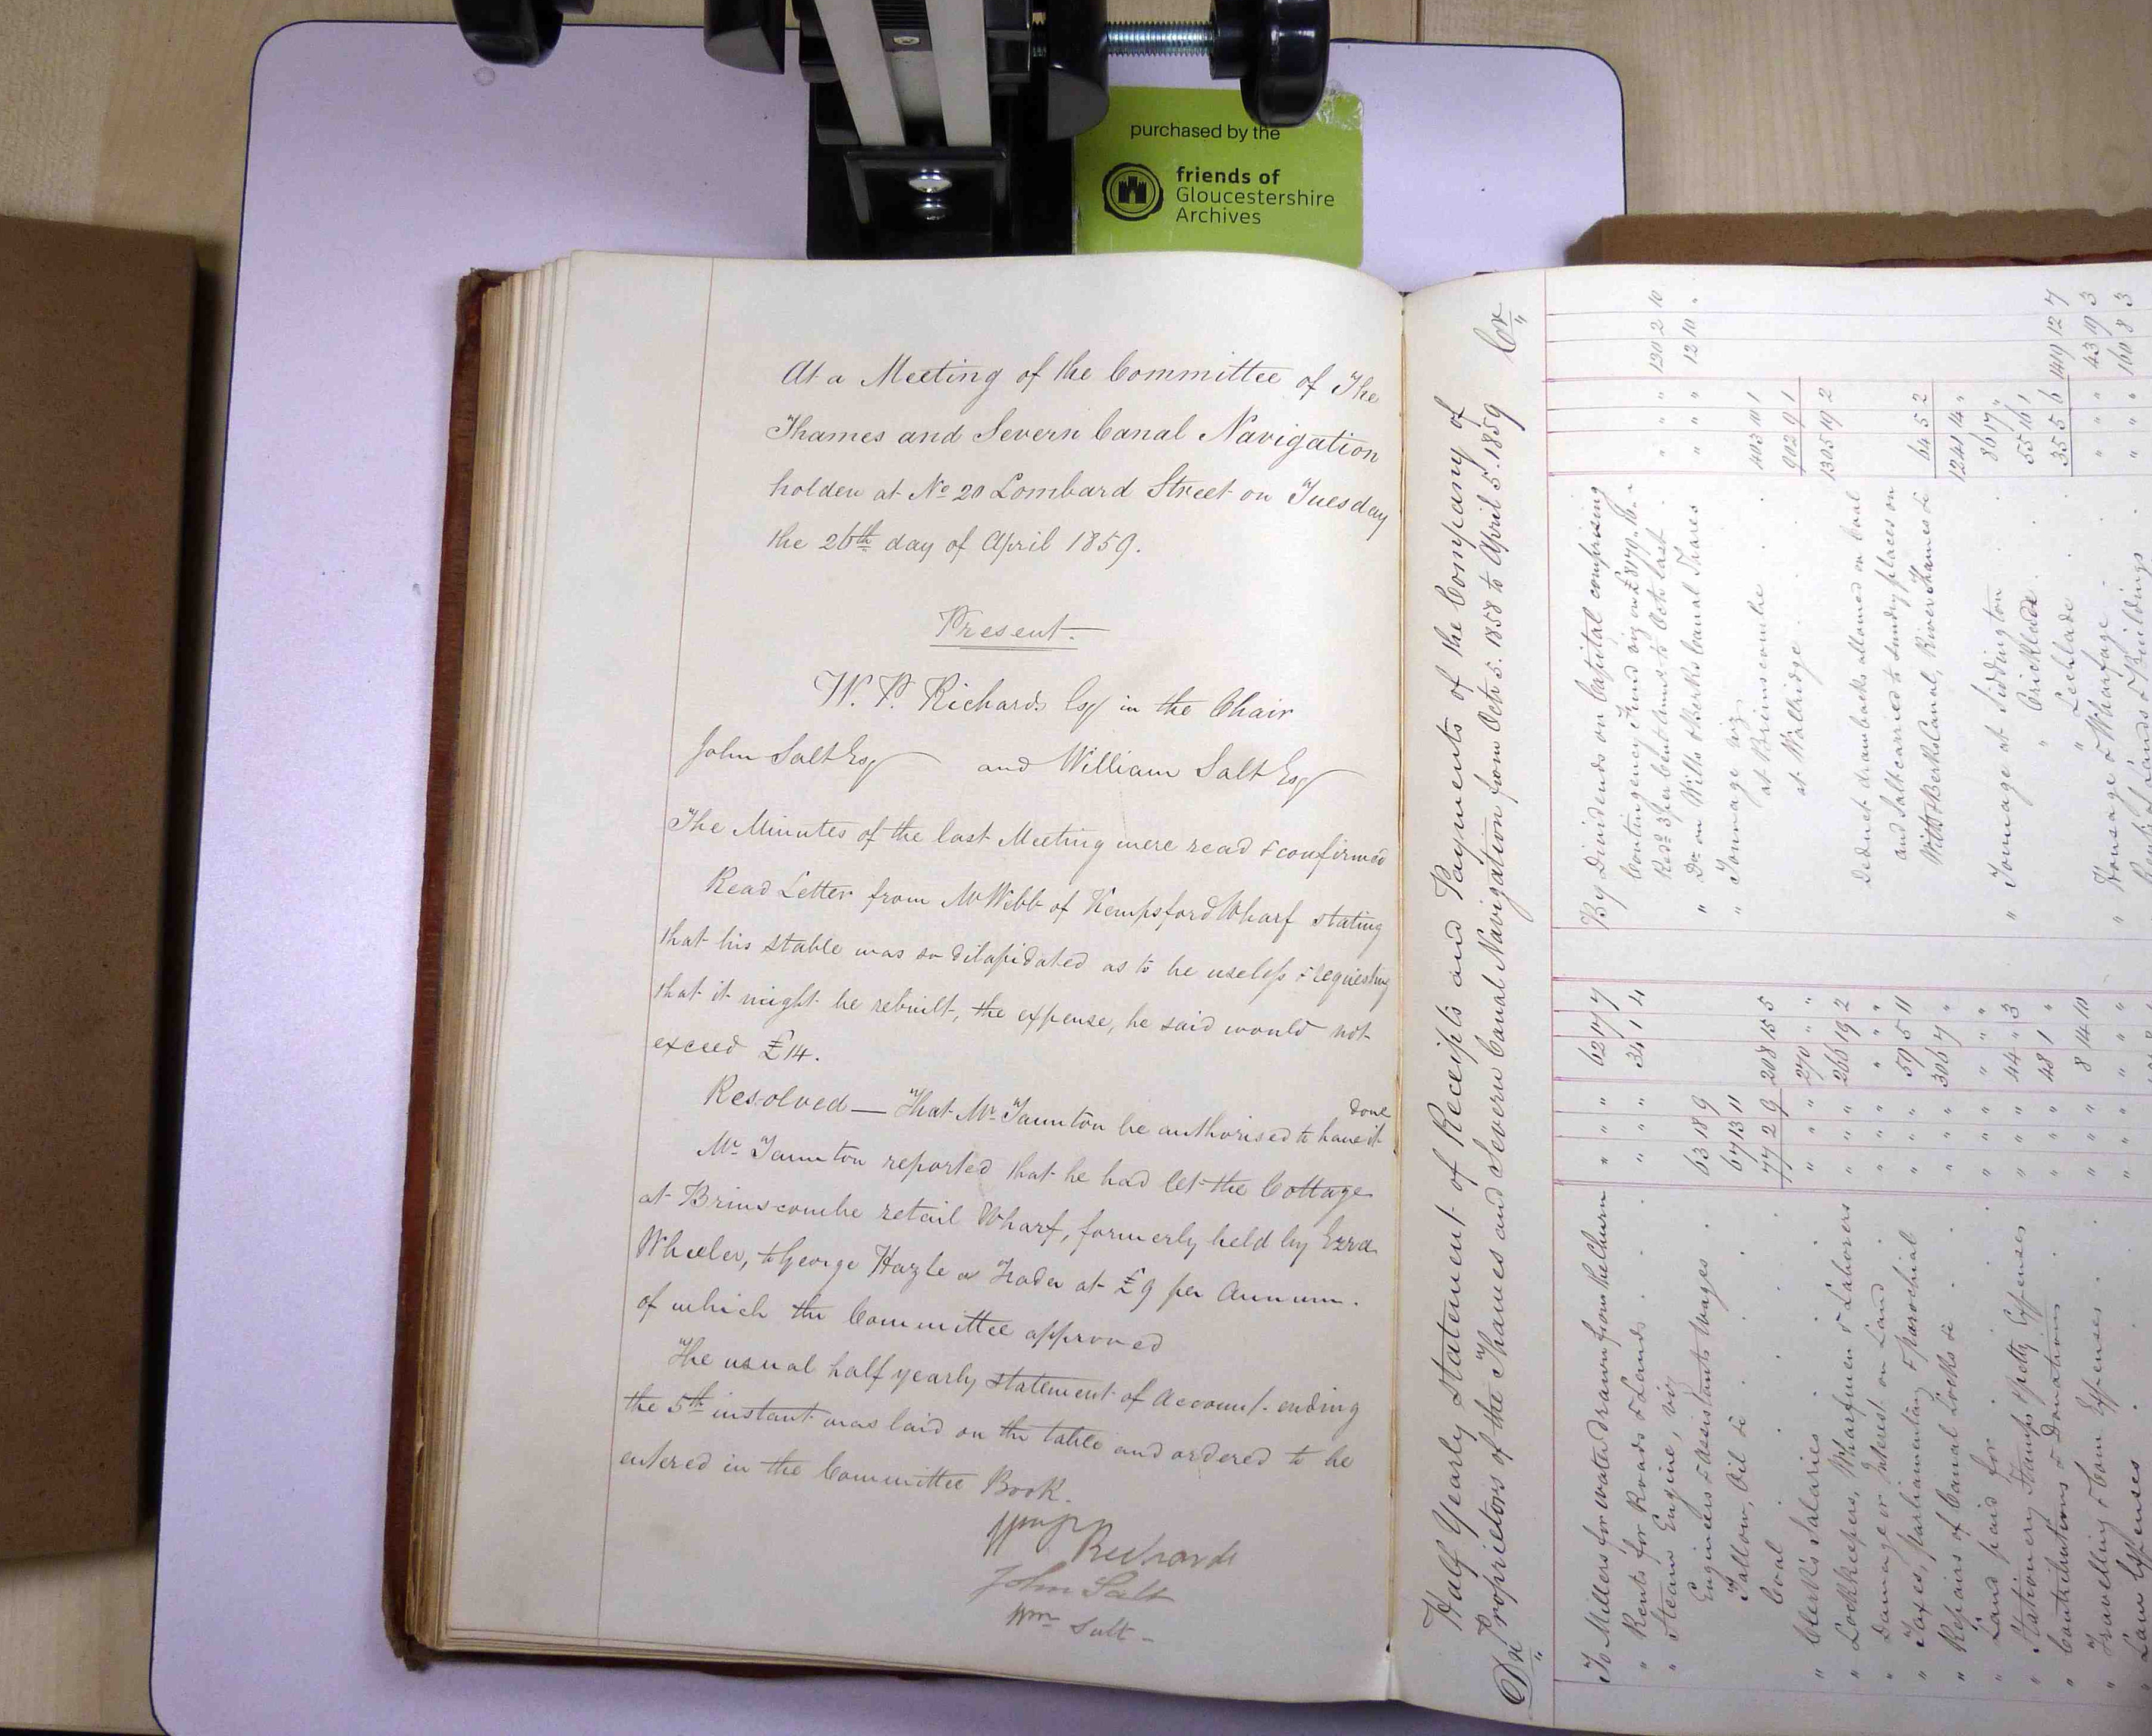 purchased by the
friends of
Gloucestershire
Archives
At a Meeting of the Committee of The
Thames and Severn Canal Navigation
holden at No 20 Lombard Street on Tuesday
the 26th day of April 1859.
Present.
W. P. Richards Esq in the Chair
John Salt Esq and William Salt Esq
The Minutes of the last Meeting were read & confirmed
Read Letter from Mr Webb of Kempsford Wharf stating
that his stable was so dilapidated as to be useless & requesting
that it might be rebuilt, the expense, he said would not
exceed £14.
Resolved — That Mr Taunton be authorised to have it done
Mr Taunton reported that he had let the Cottage
at Brimscombe retail Wharf, formerly held by Ezra
Wheeler, to George Hazle a Trader at £9 per Annum.
of which the Committee approved
The usual half yearly statement of Account ending
the 5th instant was laid on the table and ordered to be
entered in the Committee Book.
Richards
John Salt
Wm Salt
Half Yearly Statement of Receipts and Payments of the Company of
Dr Proprietors of the Thames and Severn Canal Navigation from Octr 5. 1858 to April 5. 1859 Cr
To Millers for water drawn from the Churn " " " 62 17 7
" Rents for Roads & Lands " " " 34 1 4
" Steam Engine, viz
Engineers & Assistants Wages 63 18 9
Tallow, Oil &c 67 13 11
Coal 77 2 9 208 15 5
" Clerk's Salaries " " " 270 " "
" Lockkeepers, Wharfmen & Laborers " " " 266 19 2
" Damage or Interest on Land " " " " " "
" Taxes, Parliamentary & Parochial " " " 59 5 11
" Repairs of Canal Locks &c " " " 306 7 "
" Land paid for " " " " " "
" Stationery, Stamps & petty Expenses " " " 44 " 3
" Contributions & Donations " " " 48 1 "
" Travelling & Com Expenses " " " 8 14 10
" Law Expenses " " "
By Dividends on Capital comprising
Contingency Fund viz on
Redd 3 per Cent Anns to Octr last " " " 120 2 10
" Do on Wilts & Berks Canal Shares " " " 12 10 "
" Tonnage viz
at Brimscombe 403 10 1
at Wallbridge 902 9 1
1305 19 2
Deduct drawbacks allowed on Coal
and Salt carried to sundry places on
Wilts & Berks Canal, River Thames &c 64 5 2
1241 14 "
" Tonnage at Siddington 86 17 "
" Cricklade 55 16 1
" Lechlade 35 5 6 1419 12 7
" Housage & Wharfage " " " 43 19 3
Rent of Lands & Buildings " " " 160 8 3